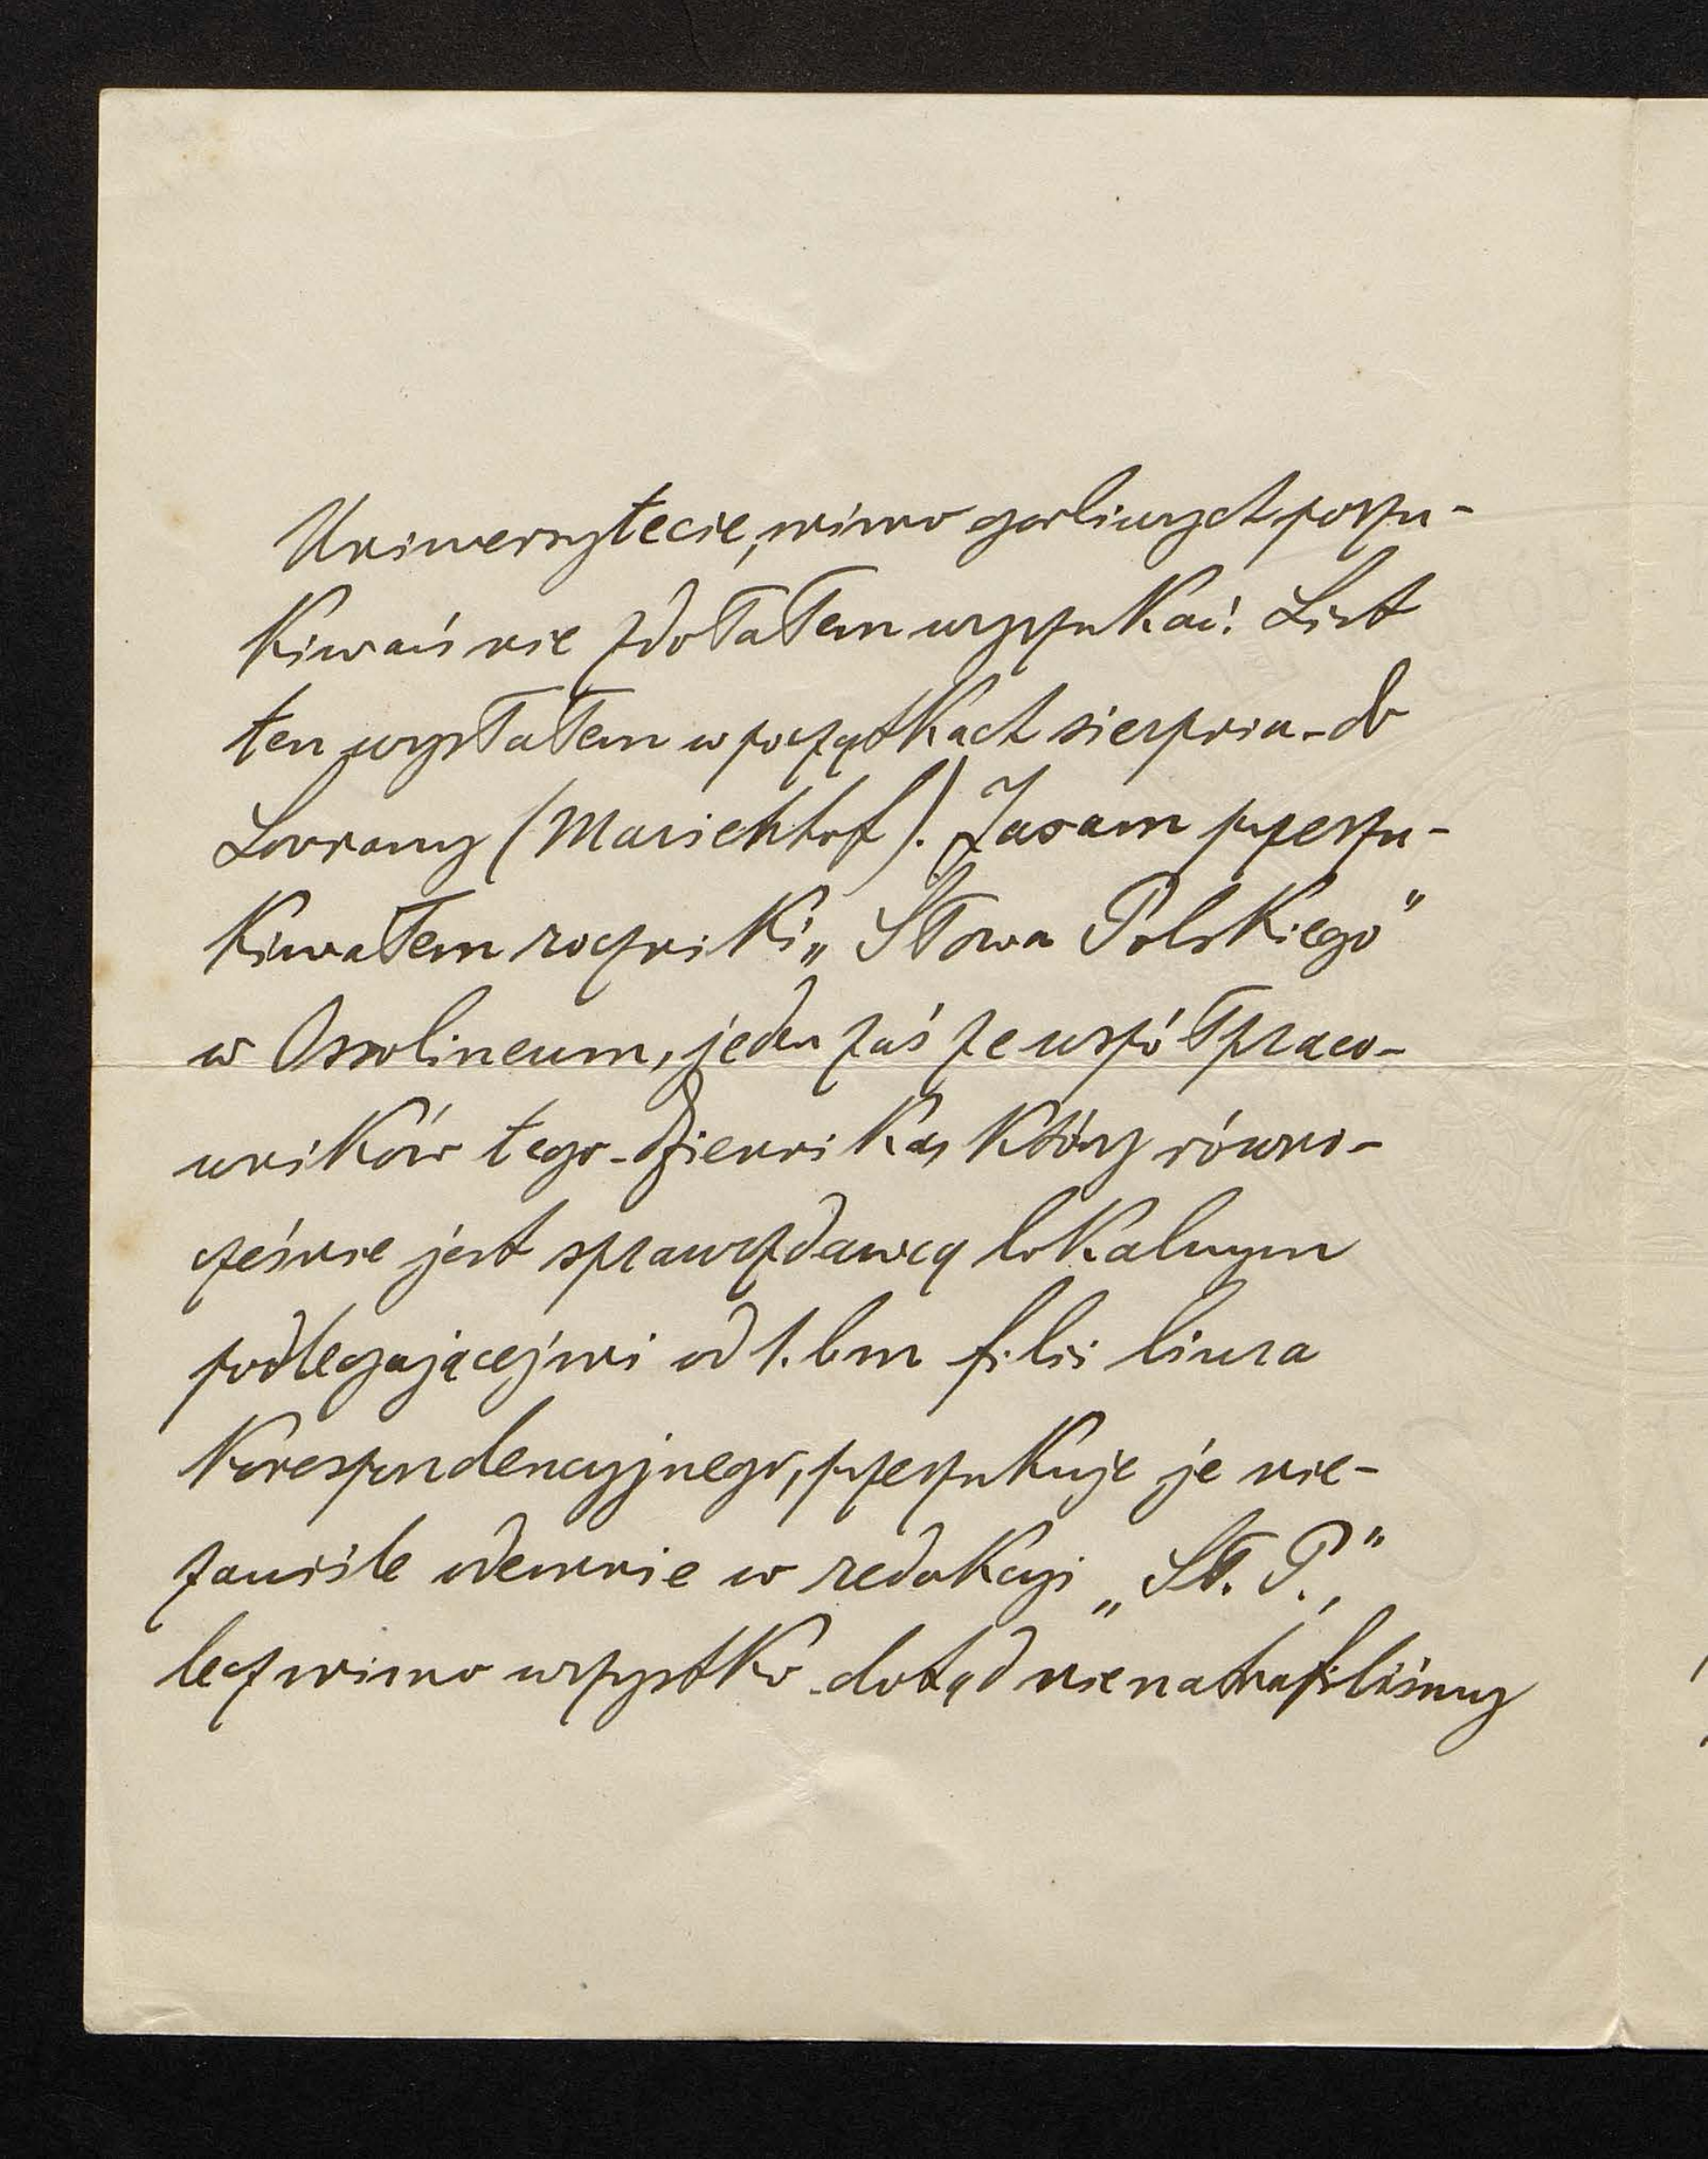 Uniwersytecie, mimo gorliwych poszu-
kiwań nie zdołałem wyszukać. List
ten wysłałem w początkach sierpnia do
Lovrany (Marienhof). Ja sam przeszu-
kiwałem roczniki „Słowa Polskiego"
w Ossolineum, jeden zaś ze współpraco-
wników tego dziennika, który równo-
cześnie jest sprawozdawcą lokalnym
podlegającej mi od 1. bm filii biura
Korespondencyjnego, przeszukuje je nie-
zawiśle odemnie w redakcyi „Sł. P.,"
lecz mimo wszystko dotąd nie natrafiliśmy